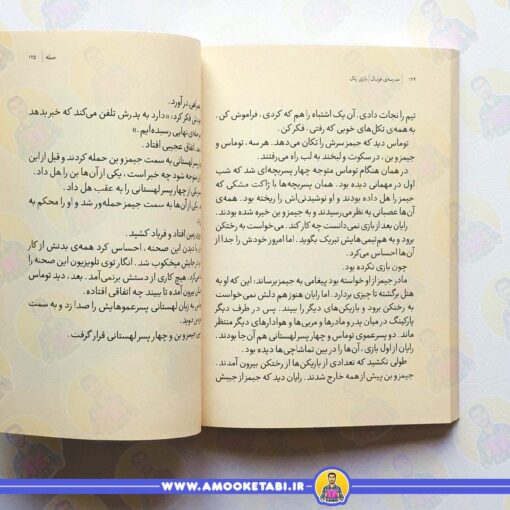 ۱۲۴ | مدرسه‌ی فوتبال | بازی رئال
تیم را نجات دادی. آن یک اشتباه را هم که کردی، فراموش کن.
به همه‌ی تکل‌های خوبی که رفتی، فکر کن.
توماس دید که جیمز سرش را تکان می‌دهد. هر سه، توماس و
جیمز و بن، در سکوت و لبخند به لب راه می‌رفتند.
در همان هنگام توماس متوجه چهار پسربچه‌ای شد که شب
اول در مهمانی دیده بود. همان پسربچه‌ها با ژاکت مشکی که
جیمز را هل داده بودند و نوشیدنی‌اش را ریخته بود. همه‌ی
آن‌ها عصبانی به نظر می‌رسیدند و به جیمز و بن خیره شده بودند.
رایان بعد از بازی نمی‌دانست چه کار کند. می‌خواست به رختکن
برود و به هم‌تیمی‌هایش تبریک بگوید. اما امروز خودش را جدا از
آن‌ها احساس می‌کرد.
چون بازی نکرده بود.
مادر جیمز از او خواسته بود پیغامی به جیمز برساند: این که او به
هتل برگشته تا چیزی بردارد. اما رایان هنوز هم دلش نمی‌خواست
به رختکن برود و بازیکن‌های دیگر را ببیند. پس در طرف دیگر
پارکینگ در میان پدر و مادرها و مربی‌ها و هوادارهای دیگر منتظر
ماند. دو پسرعموی توماس و چهار پسر لهستانی هم آن‌جا بودند.
رایان از اول بازی، آن‌ها را در بین تماشاچی‌ها دیده بود.
طولی نکشید که تعدادی از بازیکن‌ها از رختکن بیرون آمدند.
جیمز و بن پیش از همه خارج شدند. رایان دید که جیمز از جیبش
حمله | ۱۲۵
درآورد.
فکر کرد: «دارد به پدرش تلفن می‌کند که خبر بدهد
نهایی رسیده‌ایم.»
اتفاق عجیبی افتاد.
پسر لهستانی به سمت جیمز و بن حمله کردند و قبل از این
متوجه شود چه خبر است، یکی از آن‌ها بن را هل داد.
یکی از چهار پسر لهستانی را به عقب هل داد.
از آن‌ها به سمت جیمز حمله‌ور شد و او را محکم به
زمین افتاد و فریاد کشید.
دیدن این صحنه، احساس کرد همه‌ی بدنش از کار
جایش میخکوب شد. انگار توی تلویزیون صحنه را
هیچ کاری از دستش برنمی‌آمد. بعد، دید توماس
بیرون آمده تا ببیند چه اتفاقی افتاده.
به زبان لهستانی پسرعموهایش را صدا زد و به سمت
دوید.
جیمز و بن و چهار پسر لهستانی قرار گرفت.
WWW.AMOOKETABI.IR